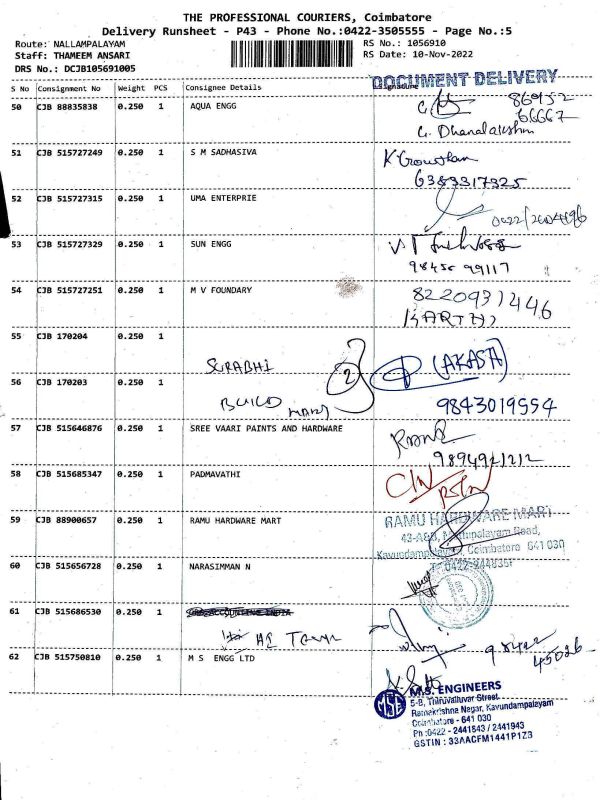 THE PROFESSIONAL COURIERS, Coimbatore
Delivery Runsheet - P43 - Phone No.:0422-3505555 - Page No.:5
Route: NALLAMPALAYAM RS No.: 1056910
Staff: THAMEEM ANSARI RS Date: 10-Nov-2022
DRS No.: DCJB105691005
DOCUMENT DELIVERY
S No Consignment No Weight PCS Consignee Details Signature
50 CJB 88835838 0.250 1 AQUA ENGG 86952
66667
G. Dhanalakshmi
51 CJB 515727249 0.250 1 S M SADHASIVA K Gowtham
6383317325
52 CJB 515727315 0.250 1 UMA ENTERPRIE
53 CJB 515727329 0.250 1 SUN ENGG
99117
54 CJB 515727251 0.250 1 M V FOUNDARY 8220931446
KARTHI
55 CJB 170204 0.250 1
SURABHI 2 (AKASH)
56 CJB 170203 0.250 1
BUILD MART 9843019554
57 CJB 515646876 0.250 1 SREE VAARI PAINTS AND HARDWARE
58 CJB 515685347 0.250 1 PADMAVATHI
59 CJB 88900657 0.250 1 RAMU HARDWARE MART RAMU HARDWARE MART
Road,
Coimbatore 641 030
60 CJB 515656728 0.250 1 NARASIMMAN N
61 CJB 515686530 0.250 1
62 CJB 515750810 0.250 1 M S ENGG LTD
MSE M.S. ENGINEERS
5-B, Thiruvalluvar Street,
Ramakrishna Nagar, Kavundampalayam
Coimbatore - 641 030
Ph :0422 - 2441543 / 2441943
GSTIN : 33AACFM1441P1Z3